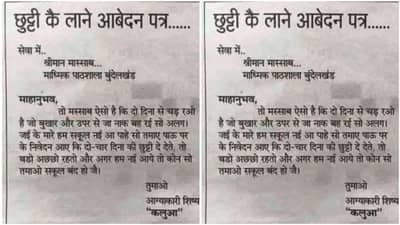 छुट्टी कै लाने आबेदन पत्र......
सेवा में..
श्रीमान मास्साब...
माध्मिक पाठशाला बुंदेलखंड
माहानुभव,
तो मस्साब ऐसो है कि दो दिना से चड़ रओ
है जो बुखार और उपर से जा नाक बह रई सो अलग।
जई के मारे हम सकूल नई आ पाहे सो तमाए पाऊ पर
के निवेदन आए कि दो-चार दिना की छुट्टी दे देते, तो
बडो अछ्छो रहतो और अगर हम नई आये तो कोन सो
तमाओ सकूल बंद हो जै।
तुमाओ
आग्याकारी शिष्य
"कलुआ"
छुट्टी कै लाने आबेदन पत्र......
सेवा में..
श्रीमान मास्साब...
माध्मिक पाठशाला बुंदेलखंड
माहानुभव,
तो मस्साब ऐसो है कि दो दिना से चड़ रओ
है जो बुखार और उपर से जा नाक बह रई सो अलग।
जई के मारे हम सकूल नई आ पाहे सो तमाए पाऊ पर
के निवेदन आए कि दो-चार दिना की छुट्टी दे देते, तो
बडो अछ्छो रहतो और अगर हम नई आये तो कोन सो
तमाओ सकूल बंद हो जै।
तुमाओ
आग्याकारी शिष्य
"कलुआ"